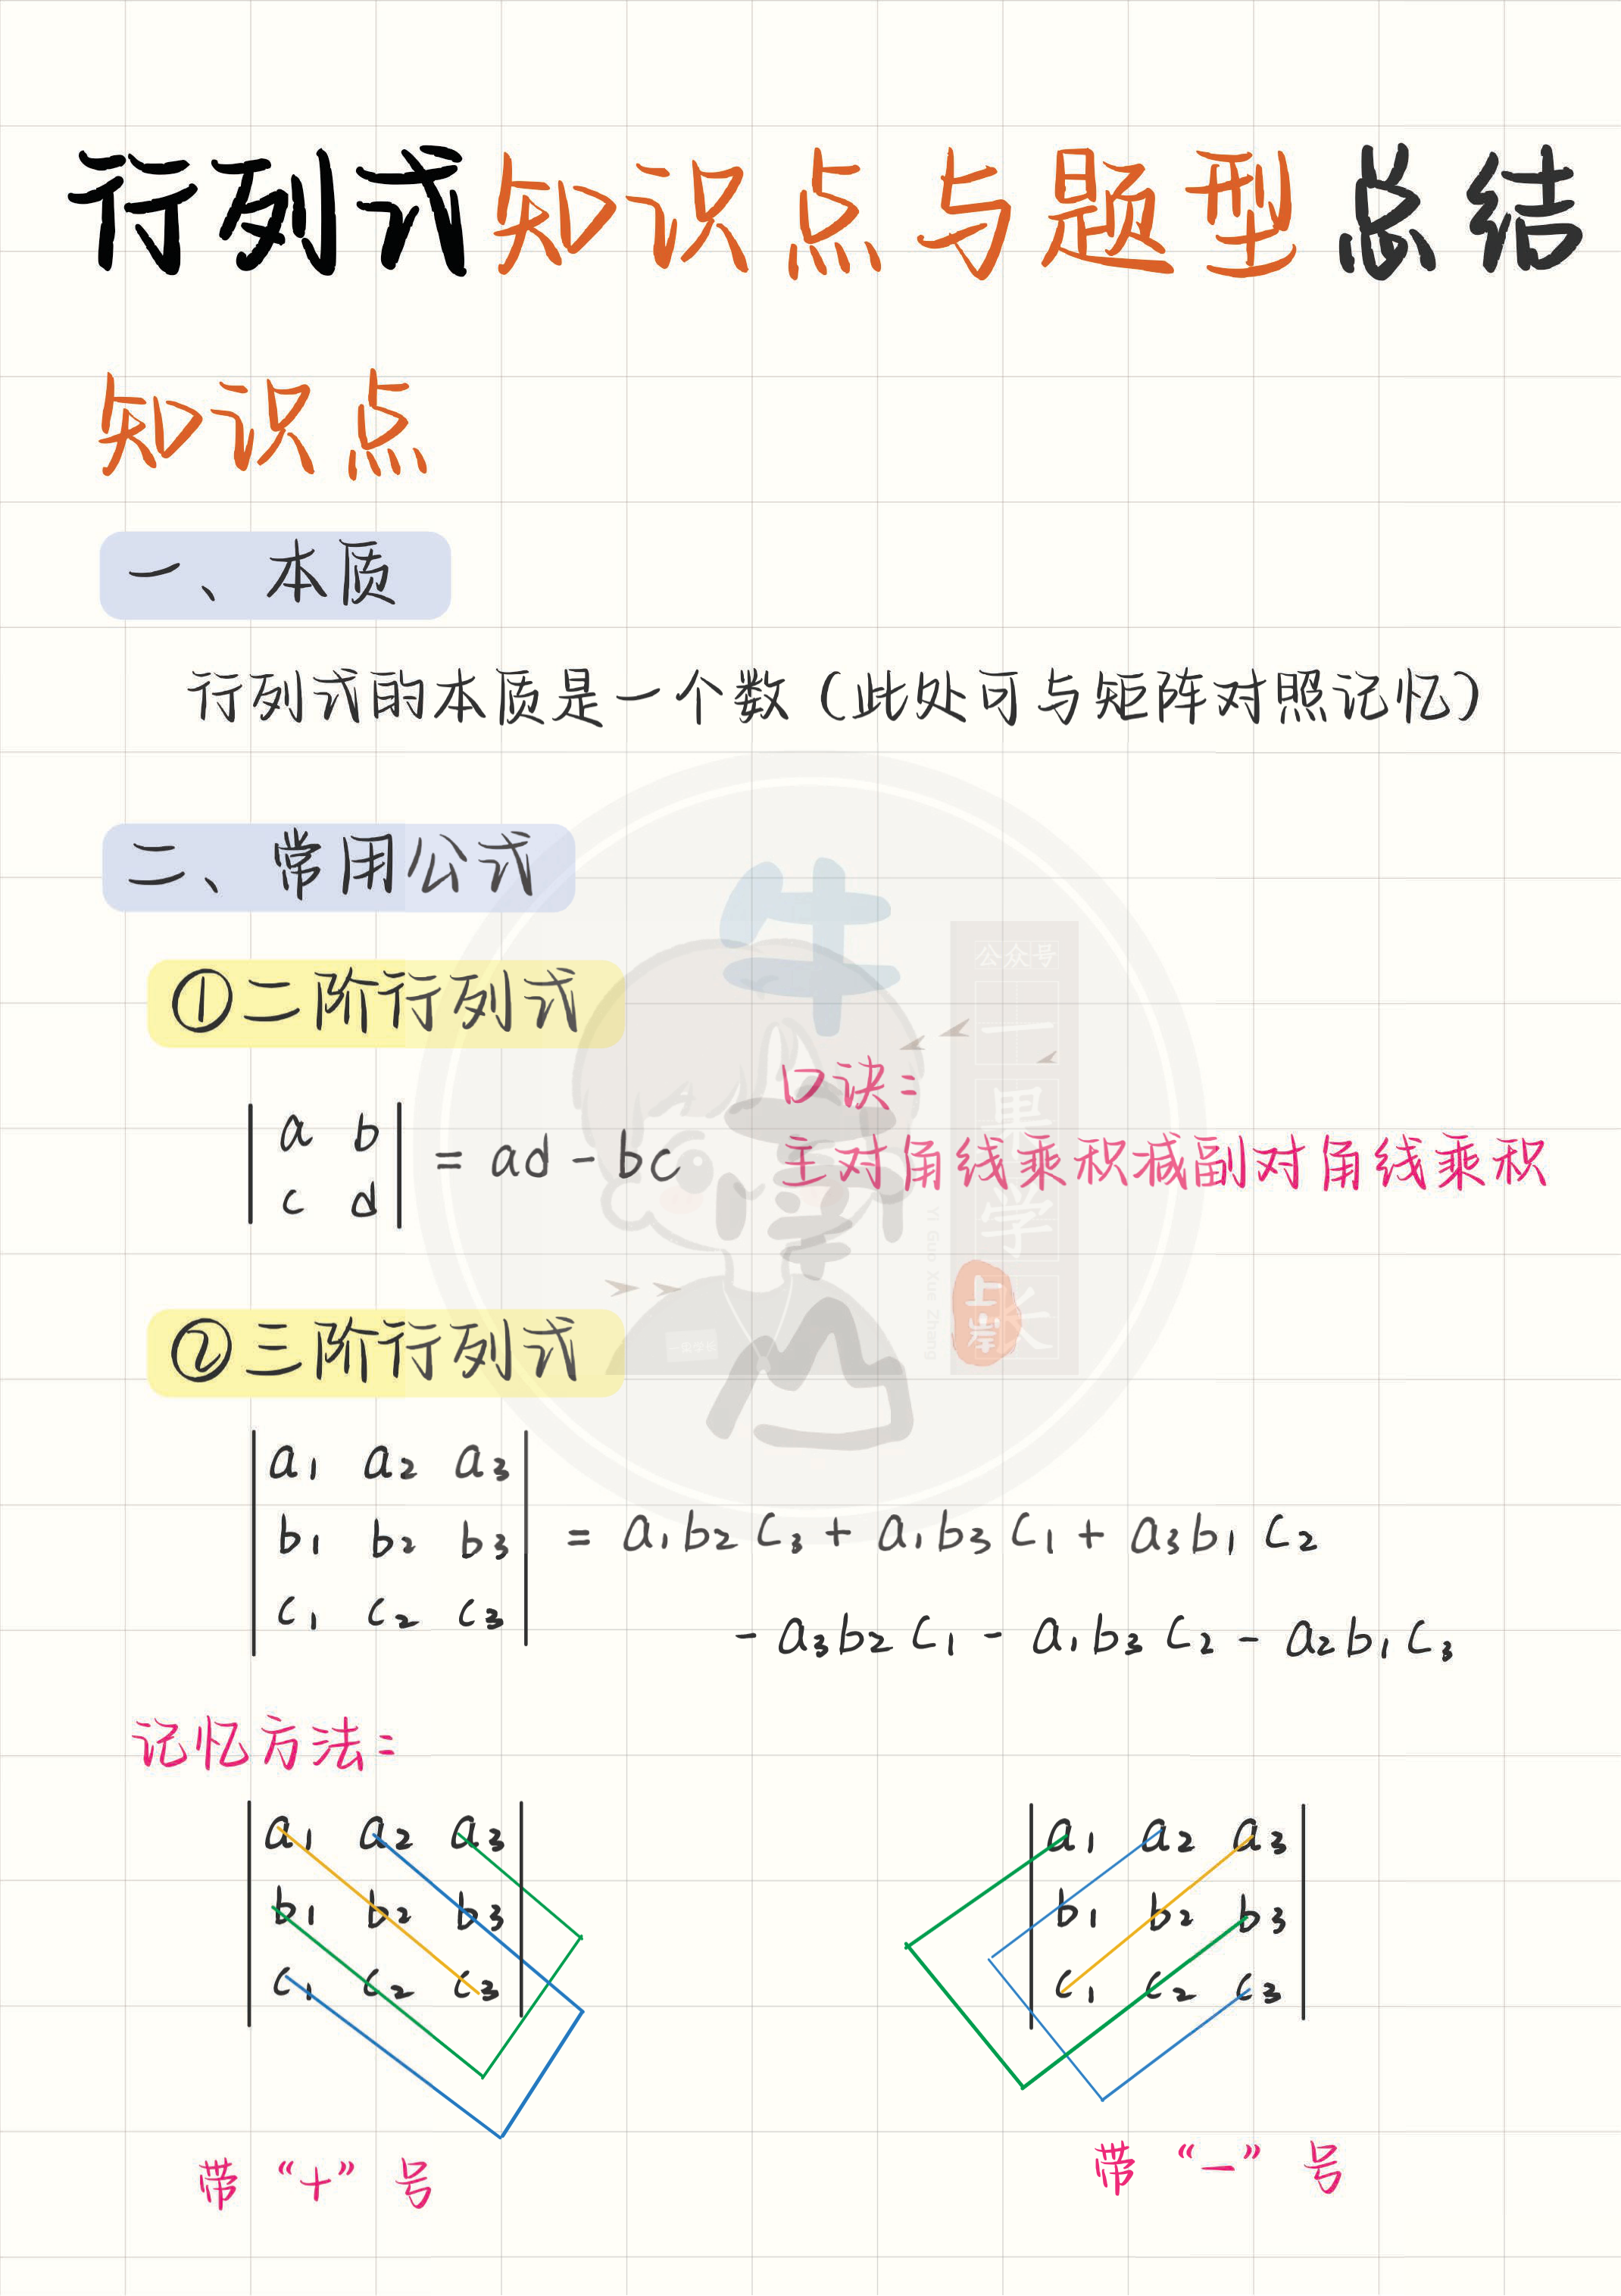 行列式知识点与题型总结
知识点
一、本质
行列式的本质是一个数（此处可与矩阵对照记忆）
二、常用公式
①二阶行列式
口诀：
| a b |
| c d | = ad - bc
主对角线乘积减副对角线乘积
②三阶行列式
| a₁ a₂ a₃ |
| b₁ b₂ b₃ | = a₁b₂c₃ + a₁b₃c₁ + a₃b₁c₂
| c₁ c₂ c₃ |
- a₃b₂c₁ - a₁b₃c₂ - a₂b₁c₃
记忆方法：
| a₁ a₂ a₃ | | a₁ a₂ a₃ |
| b₁ b₂ b₃ | | b₁ b₂ b₃ |
| c₁ c₂ c₃ | | c₁ c₂ c₃ |
带“+”号 带“一”号
牛
公众号
一果学长
Yi Guo Xue Zhang
上岸